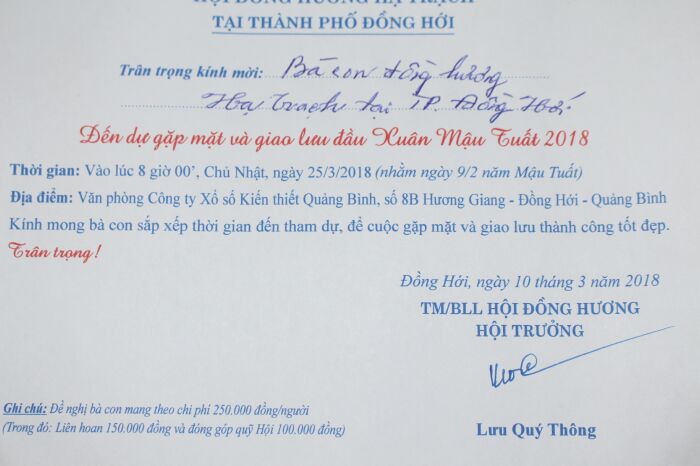 HỘI ĐỒNG HƯƠNG HẠ TRẠCH
TẠI THÀNH PHỐ ĐỒNG HỚI
Trân trọng kính mời: Bà con đồng hương
Hạ Trạch tại TP. Đồng Hới
Đến dự gặp mặt và giao lưu đầu Xuân Mậu Tuất 2018
Thời gian: Vào lúc 8 giờ 00’, Chủ Nhật, ngày 25/3/2018 (nhằm ngày 9/2 năm Mậu Tuất)
Địa điểm: Văn phòng Công ty Xổ số Kiến thiết Quảng Bình, số 8B Hương Giang - Đồng Hới - Quảng Bình
Kính mong bà con sắp xếp thời gian đến tham dự, để cuộc gặp mặt và giao lưu thành công tốt đẹp.
Trân trọng!
Đồng Hới, ngày 10 tháng 3 năm 2018
TM/BLL HỘI ĐỒNG HƯƠNG
HỘI TRƯỞNG
Ghi chú: Đề nghị bà con mang theo chi phí 250.000 đồng/người
(Trong đó: Liên hoan 150.000 đồng và đóng góp quỹ Hội 100.000 đồng)
Lưu Quý Thông